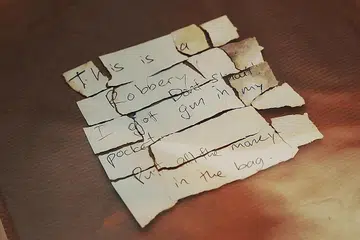 This is a
Robbery!
Don't Shout!
I got gun in my
pocket
Put all the money
in the bag.